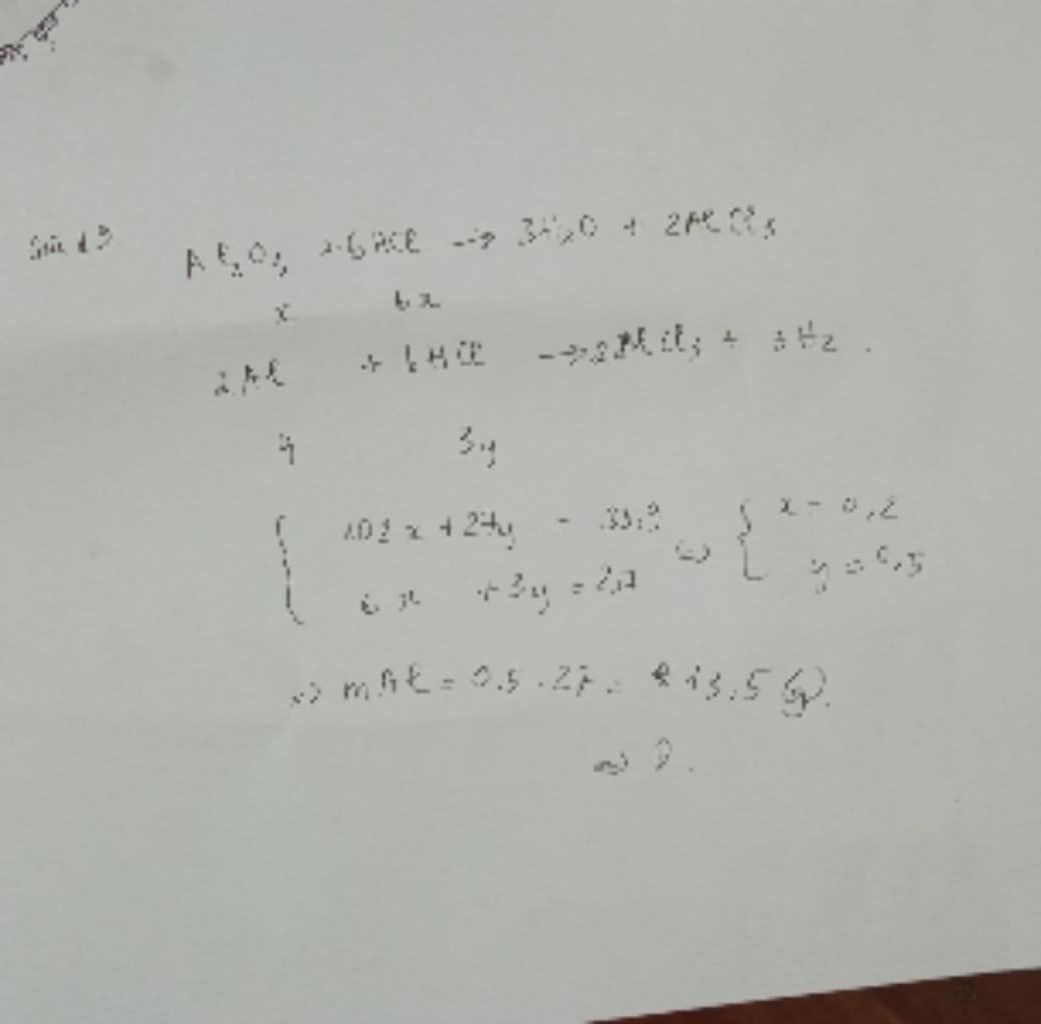 Al₂O₃ + 6HCl → 3H₂O + 2AlCl₃
x 6x
2Al + 6HCl → 2AlCl₃ + 3H₂.
y 3y
{ 102x + 27y = 33,9 ⇔ { x = 0,2
6x + 3y = 2,7 y = 0,5
⇒ mAl = 0,5 . 27 = 13,5 (g).
⇒ D.